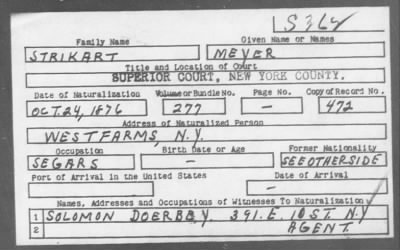 Family Name Given Name or Names
STRIKART MEYER
Title and Location of Court
SUPERIOR COURT, NEW YORK COUNTY.
Date of Naturalization Volume or Bundle No. Page No. Copy of Record No.
OCT. 24, 1876 277 — 472
Address of Naturalized Person
WESTFARMS, N.Y.
Occupation Birth Date or Age Former Nationality
SEGARS — SEE OTHERSIDE
Port of Arrival in the United States Date of Arrival
— —
Names, Addresses and Occupations of Witnesses To Naturalization
1 SOLOMON DOERBBY. 391. E. 10 ST. N.Y
2 AGENT.